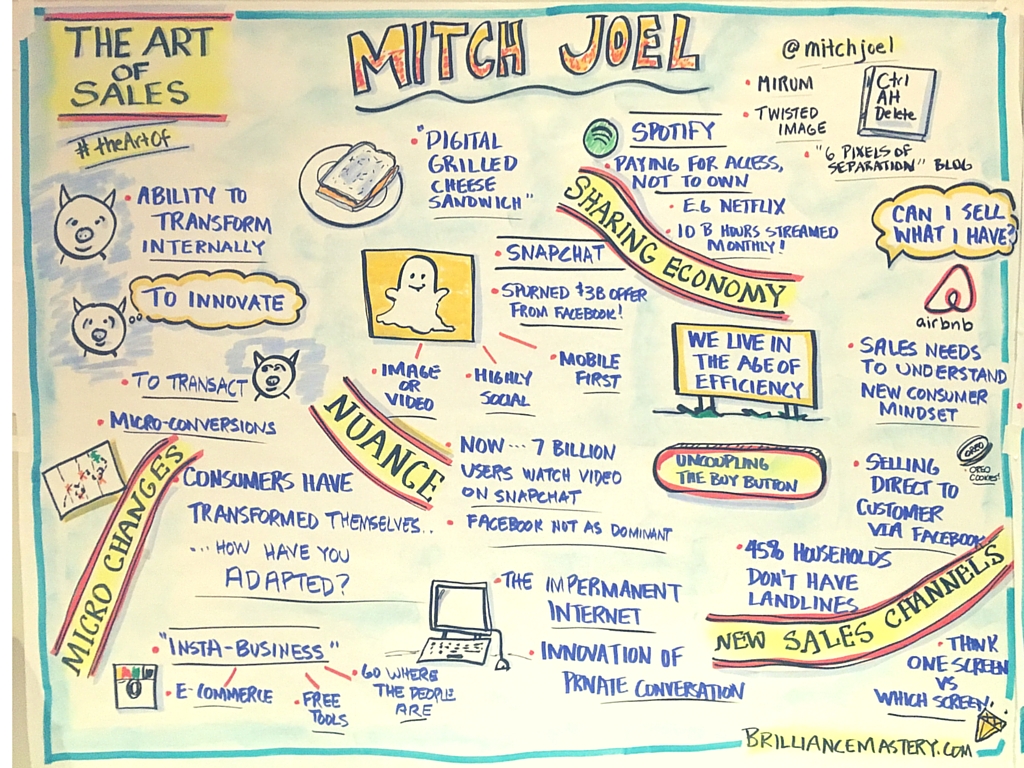 THE ART
OF
SALES
#theArtOf
MITCH JOEL
@mitchjoel
• MIRUM
• TWISTED
IMAGE
• "6 PIXELS OF
SEPARATION" BLOG
Ctrl
Alt
Delete
• ABILITY TO
TRANSFORM
INTERNALLY
TO INNOVATE
• TO TRANSACT
• MICRO-CONVERSIONS
MICRO CHANGES
CONSUMERS HAVE
TRANSFORMED THEMSELVES..
...HOW HAVE YOU
ADAPTED?
"INSTA-BUSINESS"
• E-COMMERCE
• FREE
TOOLS
• GO WHERE
THE PEOPLE
ARE
• "DIGITAL
GRILLED
CHEESE
SANDWICH"
• SNAPCHAT
• SPURNED $3B OFFER
FROM FACEBOOK!
• IMAGE
OR
VIDEO
• HIGHLY
SOCIAL
• MOBILE
FIRST
NUANCE
• NOW... 7 BILLION
USERS WATCH VIDEO
ON SNAPCHAT
• FACEBOOK NOT AS DOMINANT
• THE IMPERMANENT
INTERNET
• INNOVATION OF
PRIVATE CONVERSATION
SPOTIFY
• PAYING FOR ACCESS,
NOT TO OWN
• E.G NETFLIX
• 10 B HOURS STREAMED
MONTHLY!
SHARING ECONOMY
WE LIVE IN
THE AGE OF
EFFICIENCY
UNCOUPLING
THE BUY BUTTON
CAN I SELL
WHAT I HAVE?
airbnb
• SALES NEEDS
TO UNDERSTAND
NEW CONSUMER
MINDSET
• SELLING
DIRECT TO
CUSTOMER
VIA FACEBOOK
OREO
OREO
COOKIES!
• 45% HOUSEHOLDS
DON'T HAVE
LANDLINES
NEW SALES CHANNELS
• THINK
ONE SCREEN
VS
WHICH SCREEN!
BRILLIANCEMASTERY.COM